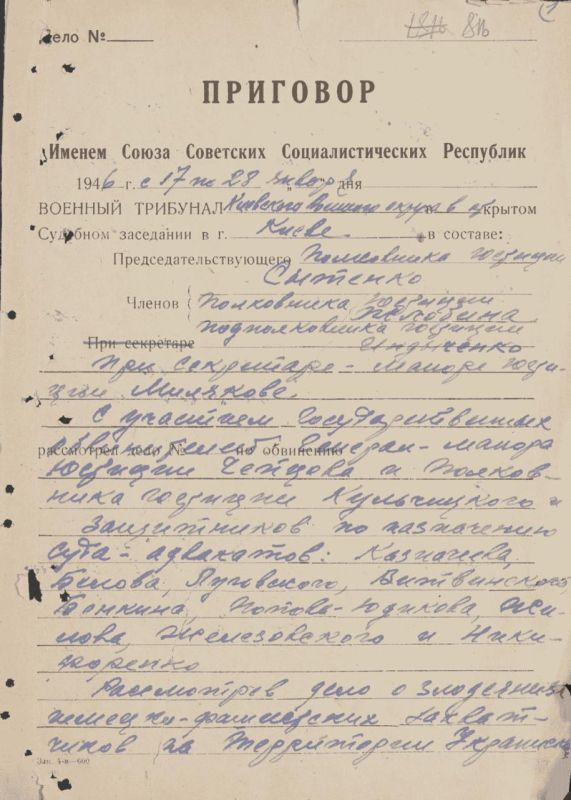 1
Дело №
181б 81б
ПРИГОВОР
Именем Союза Советских Социалистических Республик
1946 г. с 17 по 28 января дня
ВОЕННЫЙ ТРИБУНАЛ Киевского Военного округа в открытом
Судебном заседании в г. Киеве в составе:
Председательствующего Полковника юстиции
Сытенко
Членов Полковника юстиции
подполковника юстиции
При секретаре
При секретаре - майоре юсти-
ции Милякове.
С участием государственных
обвинителей Генерал-майора
рассмотрел дело № по обвинению
Юстиции Чепцова и Полков-
ника юстиции Кульчицкого и
защитников по назначению
суда - адвокатов: Казначеева,
Белова, Луговского, Витвинского,
Бонкина,
лова, Железовского и Ники-
форенко
Рассмотрев дело о злодеяниях
немецко-фашистских захват-
чиков на территории Украинск
Зак. 4-п—600